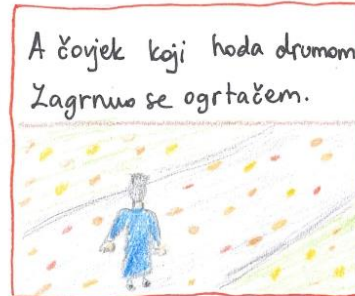 A čovjek koji hoda drumom
Zagrnuo se ogrtačem.